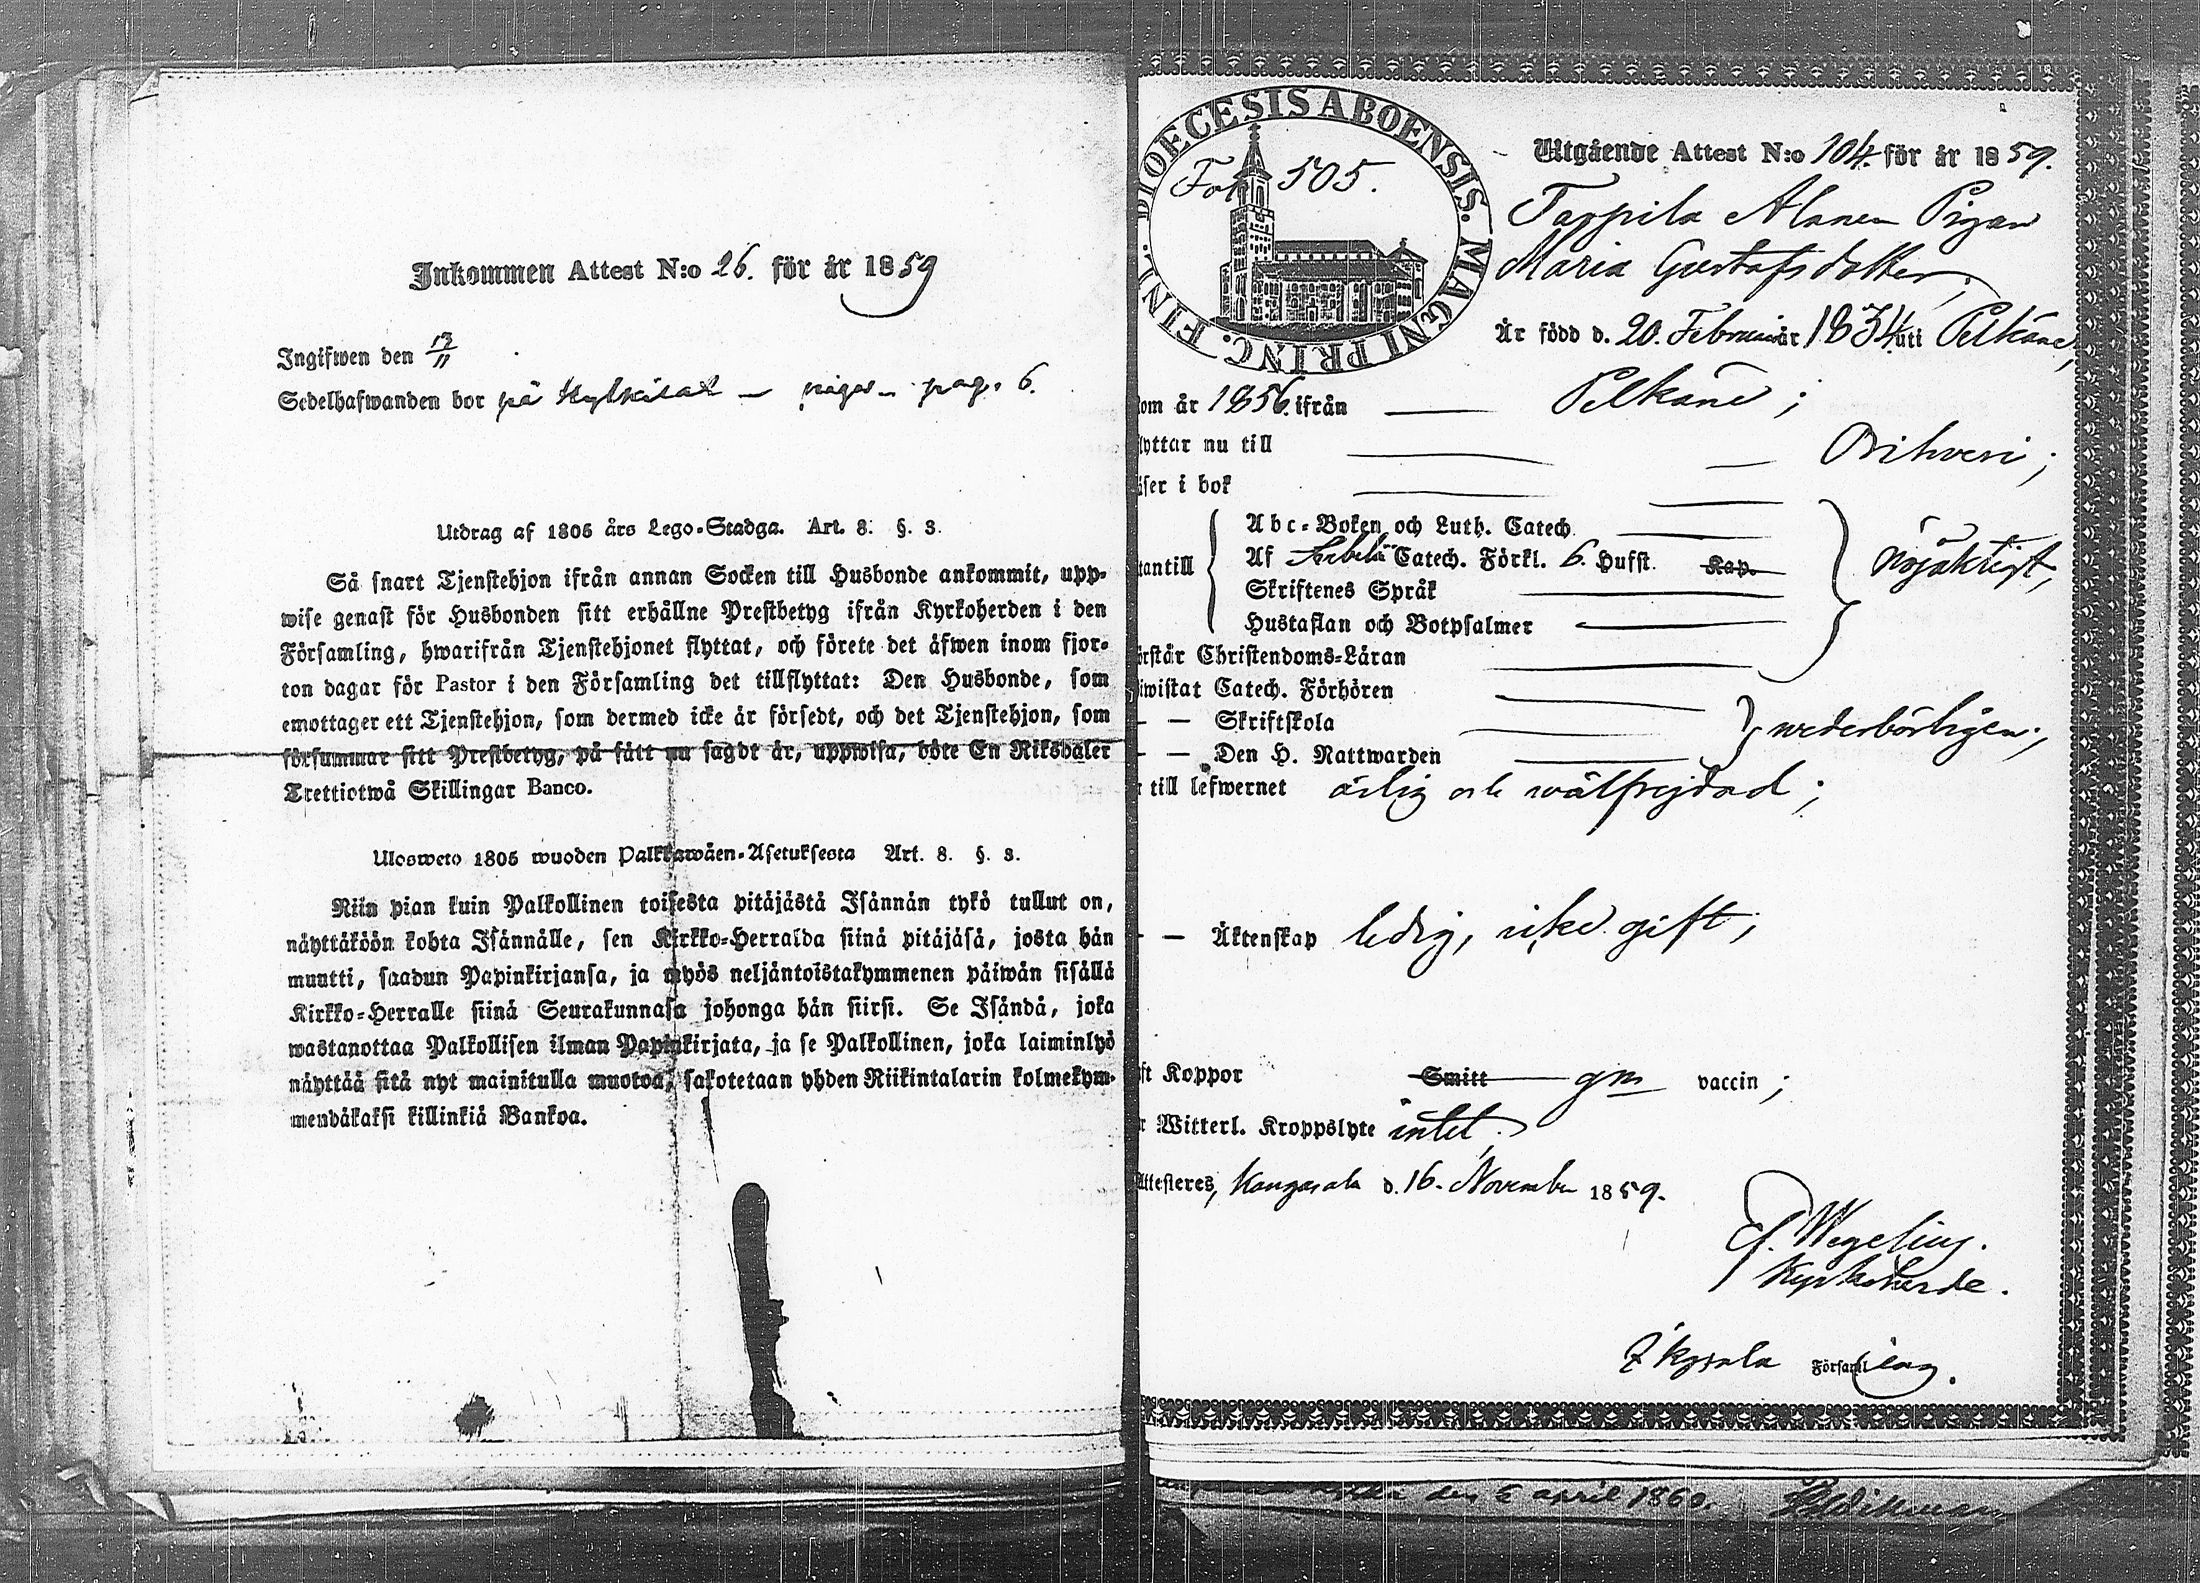 Inkommen Attest N:o 26. för år 1859
Ingifwen den 17/11
Sedelhafwanden bor på Kylkilax – piga – pag. 6.
Utdrag af 1805 års Lego-Stadga. Art. 8. §. 3.
Så snart Tjenstehjon ifrån annan Socken till Husbonde ankommit, upp-
wise genast för Husbonden sitt erhållne Prestbetyg ifrån Kyrkoherden i den
Församling, hwarifrån Tjenstehjonet flyttat, och förete det äfwen inom fjor-
ton dagar för Pastor i den Församling det tillflyttat: Den Husbonde, som
emottager ett Tjenstehjon, som dermed icke är försedt, och det Tjenstehjon, som
försummar sitt Prestbetyg, på sätt nu sagdt är, uppwisa, böte En Riksdaler
Trettiotwå Skillingar Banco.
Ulosweto 1805 wuoden Palkkawäen-Asetuksesta Art. 8. §. 3.
Niin pian kuin Palkollinen toisesta pitäjästä Isännän tykö tullut on,
näyttäköön kohta Isännälle, sen Kirkko-Herralda siinä pitäjäsä, josta hän
muutti, saadun Papinkirjansa, ja myös neljäntoistakymmenen päiwän sisällä
Kirkko-Herralle siinä Seurakunnasa johonga hän siirsi. Se Isändä, joka
wastanottaa Palkollisen ilman Papinkirjata, ja se Palkollinen, joka laiminlyö
näyttää sitä nyt mainitulla muotoa, sakotetaan yhden Riikintalarin kolmekym-
mendäkaksi killinkiä Bankoa.
DIOECESIS ABOENSIS. MAGNI PRINC. FINL.
Fol 505.
Utgående Attest N:o 104. för år 1859.
Tappila Alanen Pigan
Maria Gustafsdotter,
Är född d. 20. Februari år 1834 uti Pelkäne,
om år 1856. ifrån Pelkäne;
lyttar nu till Orihvesi;
äser i bok
Abc-Boken och Luth. Catech.
tantill Af Catech. Förkl. 6. Hufst. Kap. nöjaktigt,
Skriftenes Språk
Hustaflan och Botpsalmer
örstår Christendoms-Läran
iwistat Catech. Förhören
– – Skriftskola wederbörligen;
– – Den H. Nattwarden
r till lefwernet ärlig och wälfrejdad;
– – Äktenskap ledig, icke gift;
ft Koppor Smitt gm vaccin;
r Witterl. Kroppslyte intet.
Attesteres, Kangasala d. 16. November 1859.
Wegelius.
Kyrkoherde.
Församling.
den april 1860.